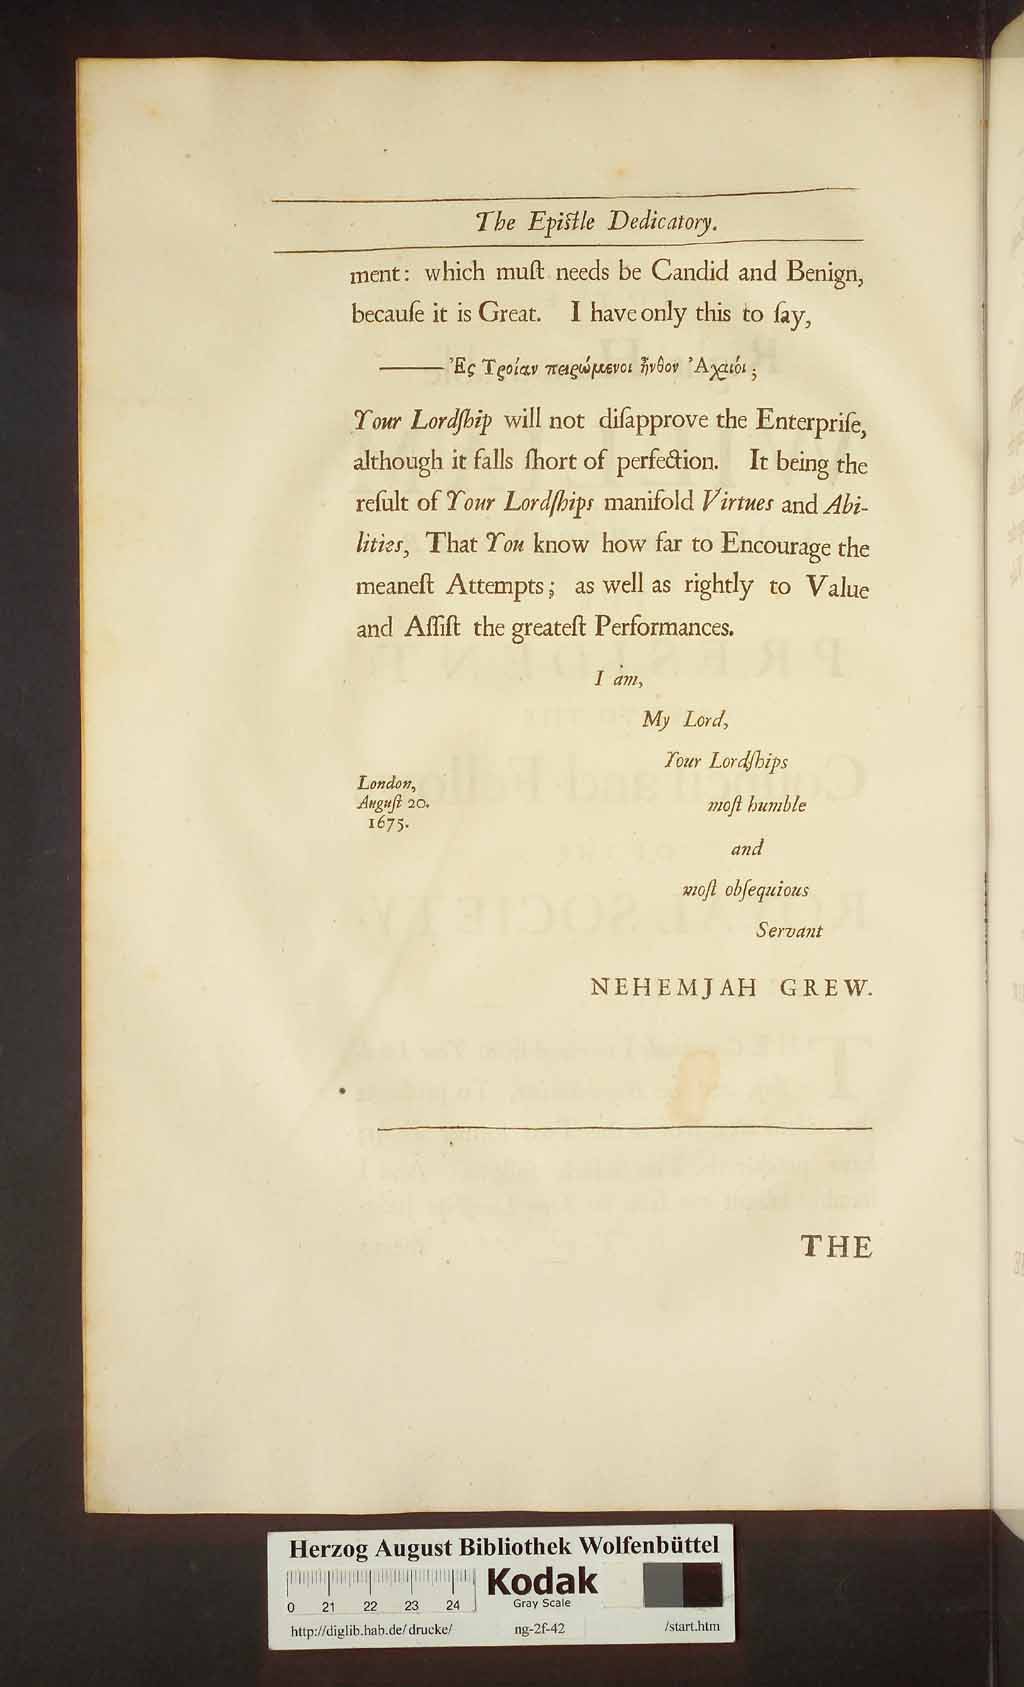 The Epiſtle Dedicatory.
ment: which muſt needs be Candid and Benign,
becauſe it is Great. I have only this to ſay,
——— Ἐς Τροίαν πειρώμενοι ἦνθον Ἀχαιόι;
Your Lordſhip will not diſapprove the Enterpriſe,
although it falls ſhort of perfection. It being the
reſult of Your Lordſhips manifold Virtues and Abi-
lities, That You know how far to Encourage the
meaneſt Attempts; as well as rightly to Value
and Aſſiſt the greateſt Performances.
I am,
My Lord,
Your Lordſhips
London,
Auguſt 20.
1675.
moſt humble
and
moſt obſequious
Servant
NEHEMJAH GREW.
THE
Herzog August Bibliothek Wolfenbüttel
0 21 22 23 24
Kodak
Gray Scale
http://diglib.hab.de/drucke/ ng-2f-42 /start.htm